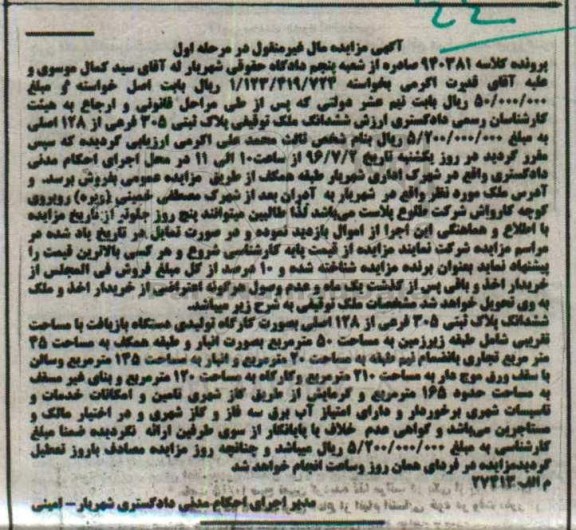 ۲۲
آگهی مزایده مال غیرمنقول در مرحله اول
پرونده کلاسه ۹۴۰۳۸۱ صادره از شعبه پنجم دادگاه حقوقی شهریار له آقای سید کمال موسوی و
علیه آقای قدیرت اکرمی بخواسته ۱/۱۲۳/۴۱۹/۷۲۳ ریال بابت اصل خواسته و مبلغ
۵۰/۰۰۰/۰۰۰ ریال بابت نیم عشر دولتی که پس از طی مراحل قانونی و ارجاع به هیئت
کارشناسان رسمی دادگستری ارزش ششدانگ ملک توقیفی پلاک ثبتی ۳۰۵ فرعی از ۱۲۸ اصلی
به مبلغ ۵/۲۰۰/۰۰۰/۰۰۰ ریال بنام شخص ثالث محمد علی اکرمی ارزیابی گردیده که سپس
مقرر گردید در روز یکشنبه تاریخ ۹۶/۷/۲ از ساعت۱۰ الی ۱۱ در محل اجرای احکام مدنی
دادگستری واقع در شهرک اداری شهریار طبقه همکف از طریق مزایده عمومی بفروش برسد. و
آدرس ملک مورد نظر واقع در شهریار به آدران بعد از شهرک مصطفی خمینی (ویره) روبروی
کوچه کارواش شرکت طلوع پلاست می‌باشد لذا طالبین میتوانند پنج روز جلوتر از تاریخ مزایده
با اطلاع و هماهنگی این اجرا از اموال بازدید نموده و در صورت تمایل در تاریخ یاد شده در
مراسم مزایده شرکت نمایند مزایده از قیمت پایه کارشناسی شروع و هر کسی بالاترین قیمت را
پیشنهاد نماید بعنوان برنده مزایده شناخته شده و ۱۰ درصد از کل مبلغ فروش فی المجلس از
خریدار اخذ و باقی پس از گذشت یک ماه و عدم وصول هرگونه اعتراضی از خریدار اخذ و ملک
به وی تحویل خواهد شد مشخصات ملک توقیفی به شرح زیر میباشد.
ششدانگ پلاک ثبتی ۳۰۵ فرعی از ۱۲۸ اصلی بصورت کارگاه تولیدی دستگاه بازیافت با مساحت
تقریبی شامل طبقه زیرزمین به مساحت ۵۰ مترمربع بصورت انبار و طبقه همکف به مساحت ۴۵
متر مربع تجاری بانضمام نیم طبقه به مساحت ۲۰ مترمربع و انبار به مساحت ۱۴۵ مترمربع وسالن
با سقف ورق موج دار به مساحت ۲۱۰ مترمربع وکارگاه به مساحت ۱۲۰ مترمربع و بنای غیر مسقف
به مساحت حدود ۱۶۵ مترمربع و گرمایش از طریق گاز شهری تامین و امکانات خدمات و
تاسیسات شهری برخوردار و دارای امتیاز آب برق سه فاز و گاز شهری و در اختیار مالک و
مستاجرین می‌باشد و گواهی عدم خلاف یا پایانکار از سوی طرفین ارائه نگردیده ضمنا مبلغ
کارشناسی به مبلغ ۵/۲۰۰/۰۰۰/۰۰۰ ریال میباشد و چنانچه روز مزایده مصادف باروز تعطیل
گردیدمزایده در فردای همان روز وساعت انجام خواهد شد
م الف ۲۷۴۱۳
مدیر اجرای احکام مدنی دادگستری شهریار- امینی